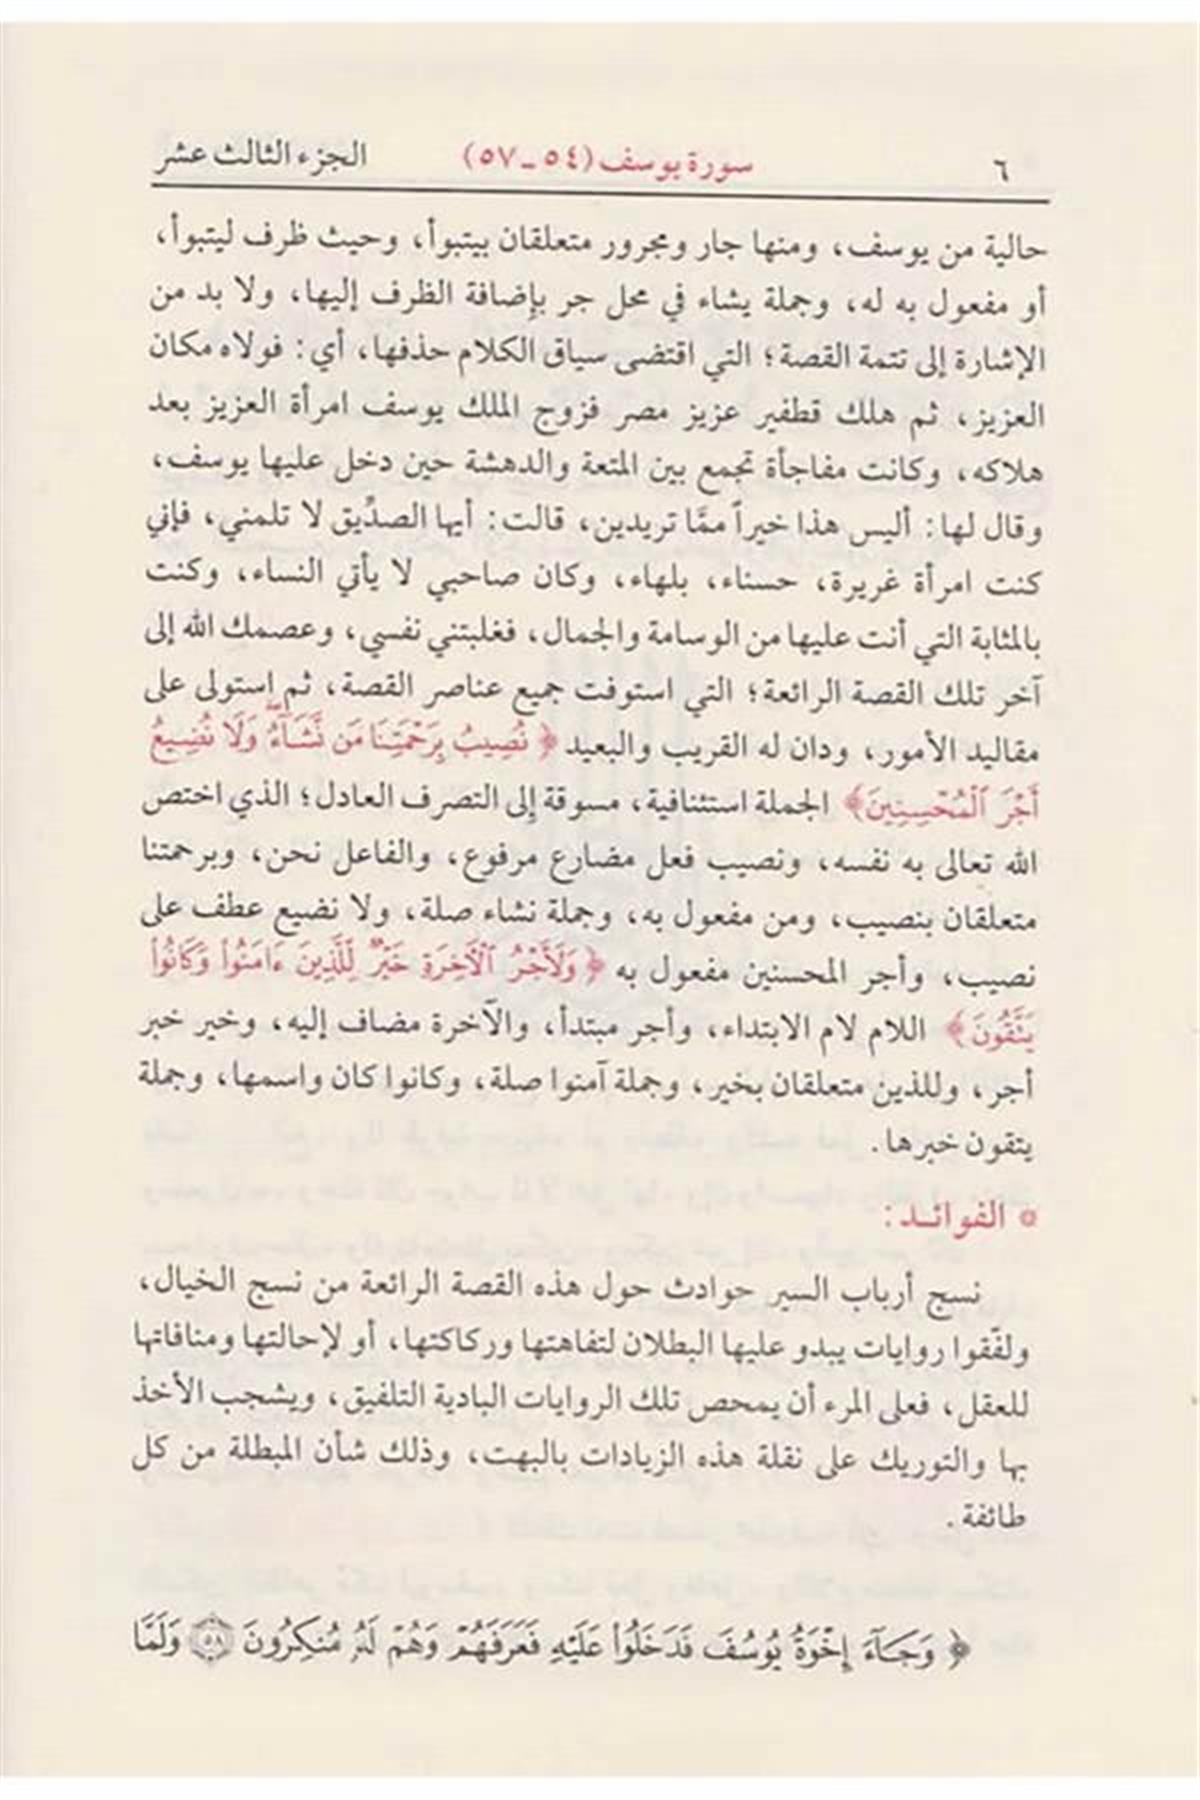 ٦ سورة يوسف (٥٤ ـ ٥٧) الجزء الثالث عشر
حالية من يوسف، ومنها جار ومجرور متعلقان بيتبوأ، وحيث ظرف ليتبوأ،
أو مفعول به له، وجملة يشاء في محل جر بإضافة الظرف إليها، ولا بد من
الإشارة إلى تتمة القصة؛ التي اقتضى سياق الكلام حذفها، أي: فولاه مكان
العزيز، ثم هلك قطفير عزيز مصر فزوج الملك يوسف امرأة العزيز بعد
هلاكه، وكانت مفاجأة تجمع بين المتعة والدهشة حين دخل عليها يوسف،
وقال لها: أليس هذا خيراً ممَّا تريدين، قالت: أيها الصدِّيق لا تلمني، فإني
كنت امرأة غريرة، حسناء، بلهاء، وكان صاحبي لا يأتي النساء، وكنت
بالمثابة التي أنت عليها من الوسامة والجمال، فغلبتني نفسي، وعصمك الله إلى
آخر تلك القصة الرائعة؛ التي استوفت جميع عناصر القصة، ثم استولى على
مقاليد الأمور، ودان له القريب والبعيد ﴿ نُصِيبُ بِرَحْمَتِنَا مَن نَّشَآءُ وَلَا نُضِيعُ
أَجْرَ ٱلْمُحْسِنِينَ﴾ الجملة استئنافية، مسوقة إلى التصرف العادل؛ الذي اختص
الله تعالى به نفسه، ونصيب فعل مضارع مرفوع، والفاعل نحن، وبرحمتنا
متعلقان بنصيب، ومن مفعول به، وجملة نشاء صلة، ولا نضيع عطف على
نصيب، وأجر المحسنين مفعول به ﴿ وَلَأَجْرُ ٱلْآخِرَةِ خَيْرٌ لِّلَّذِينَ ءَامَنُوا۟ وَكَانُوا۟
يَتَّقُونَ﴾ اللام لام الابتداء، وأجر مبتدأ، والآخرة مضاف إليه، وخير خبر
أجر، وللذين متعلقان بخير، وجملة آمنوا صلة، وكانوا كان واسمها، وجملة
يتقون خبرها.
* الفوائد:
نسج أرباب السير حوادث حول هذه القصة الرائعة من نسج الخيال،
ولفّقوا روايات يبدو عليها البطلان لتفاهتها وركاكتها، أو لإحالتها ومنافاتها
للعقل، فعلى المرء أن يمحص تلك الروايات البادية التلفيق، ويشجب الأخذ
بها والتوريك على نقلة هذه الزيادات بالبهت، وذلك شأن المبطلة من كل
طائفة.
﴿ وَجَآءَ إِخْوَةُ يُوسُفَ فَدَخَلُوا۟ عَلَيْهِ فَعَرَفَهُمْ وَهُمْ لَهُۥ مُنكِرُونَ ۝٥٨ وَلَمَّا